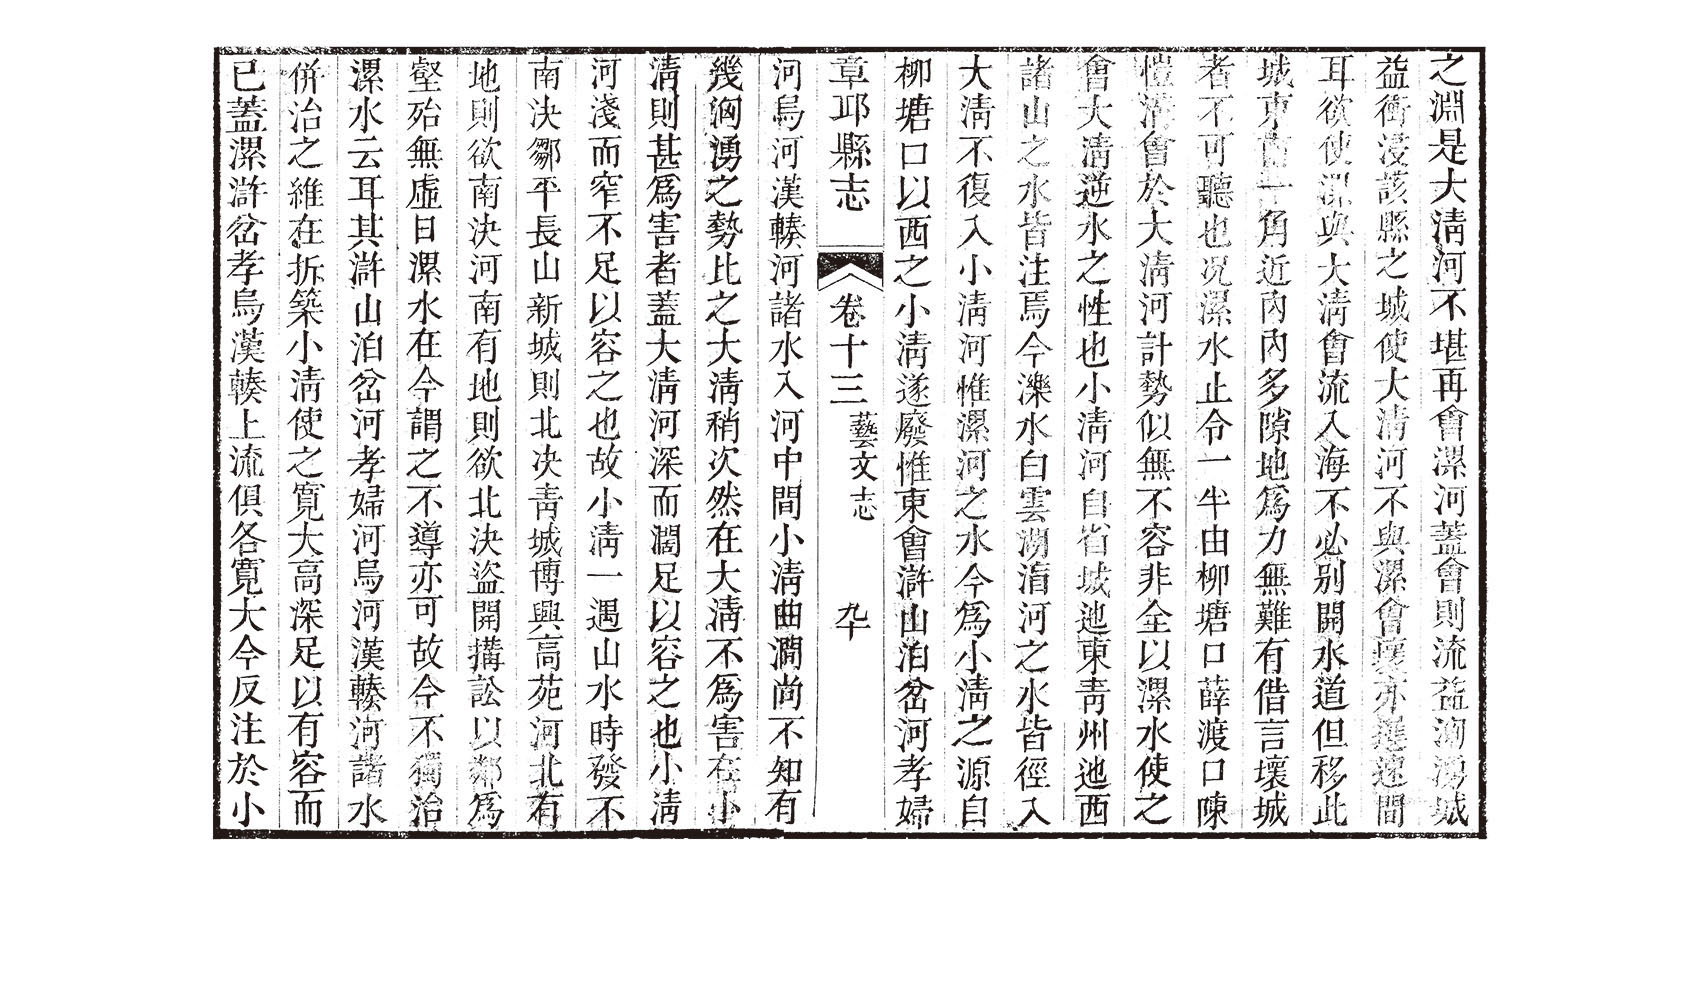 之淵是大淸河不堪再會漯河蓋會則流益洶湧城
益衝浸該縣之城使大淸河不與漯會襄亦遲速間
耳欲使漯與大淸會流入海不必別開水道但移此
城東南一角近內內多隙地爲力無難有借言壞城
者不可聽也况漯水止令一半由柳塘口薛渡口陳
愷溝會於大淸河計勢似無不容非全以漯水使之
會大淸逆水之性也小淸河自省城迆東靑州迆西
諸山之水皆注焉今濼水白雲澇淯河之水皆徑入
大淸不復入小淸河惟漯河之水今爲小淸之源自
柳塘口以西之小淸遂廢惟東會滸山泊岔河孝婦
章邱縣志
卷十三
藝文志
九十
河烏河漢輳河諸水入河中間小淸曲澗尚不知有
幾洶湧之勢比之大淸稍次然在大淸不爲害在小
淸則甚爲害者蓋大淸河深而濶足以容之也小淸
河淺而窄不足以容之也故小淸一遇山水時發不
南決鄒平長山新城則北决靑城博興高苑河北有
地則欲南決河南有地則欲北決盜開搆訟以鄰爲
壑殆無虛日漯水在今謂之不導亦可故今不獨治
漯水云耳其滸山泊岔河孝婦河烏河漢輳河諸水
併治之維在拆築小淸使之寬大高深足以有容而
已蓋漯滸岔孝烏漢輳上流俱各寬大今反注於小